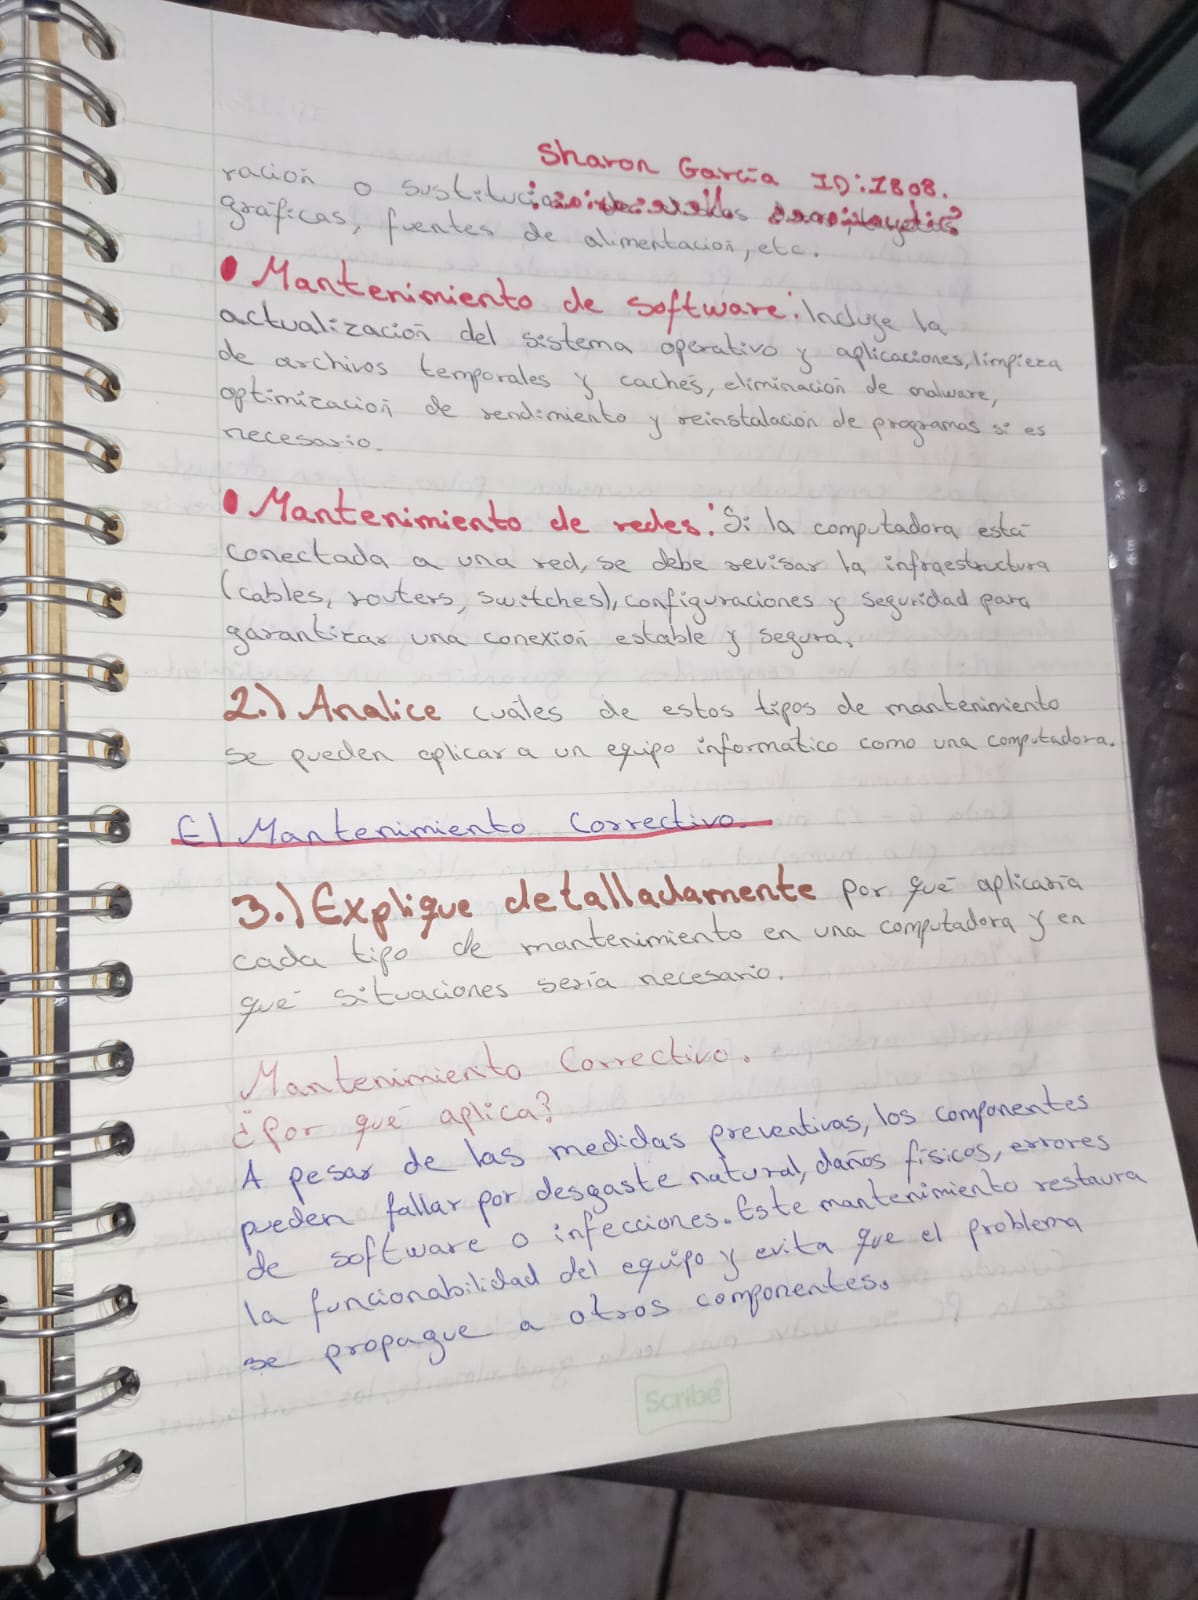 Sharon García ID:1808.
ración o sustitución
gráficas, fuentes de alimentación, etc.
• Mantenimiento de software: Incluye la
actualización del sistema operativo y aplicaciones, limpieza
de archivos temporales y cachés, eliminación de malware,
optimización de rendimiento y reinstalación de programas si es
necesario.
• Mantenimiento de redes: Si la computadora está
conectada a una red, se debe revisar la infraestructura
(cables, routers, switches), configuraciones y seguridad para
garantizar una conexión estable y segura.
2.) Analice cuáles de estos tipos de mantenimiento
se pueden aplicar a un equipo informático como una computadora.
El Mantenimiento Correctivo.
3.) Explique detalladamente por qué aplicaría
cada tipo de mantenimiento en una computadora y en
qué situaciones sería necesario.
Mantenimiento Correctivo.
¿Por qué aplica?
A pesar de las medidas preventivas, los componentes
pueden fallar por desgaste natural, daños físicos, errores
de software o infecciones. Este mantenimiento restaura
la funcionabilidad del equipo y evita que el problema
se propague a otros componentes.
Scribe